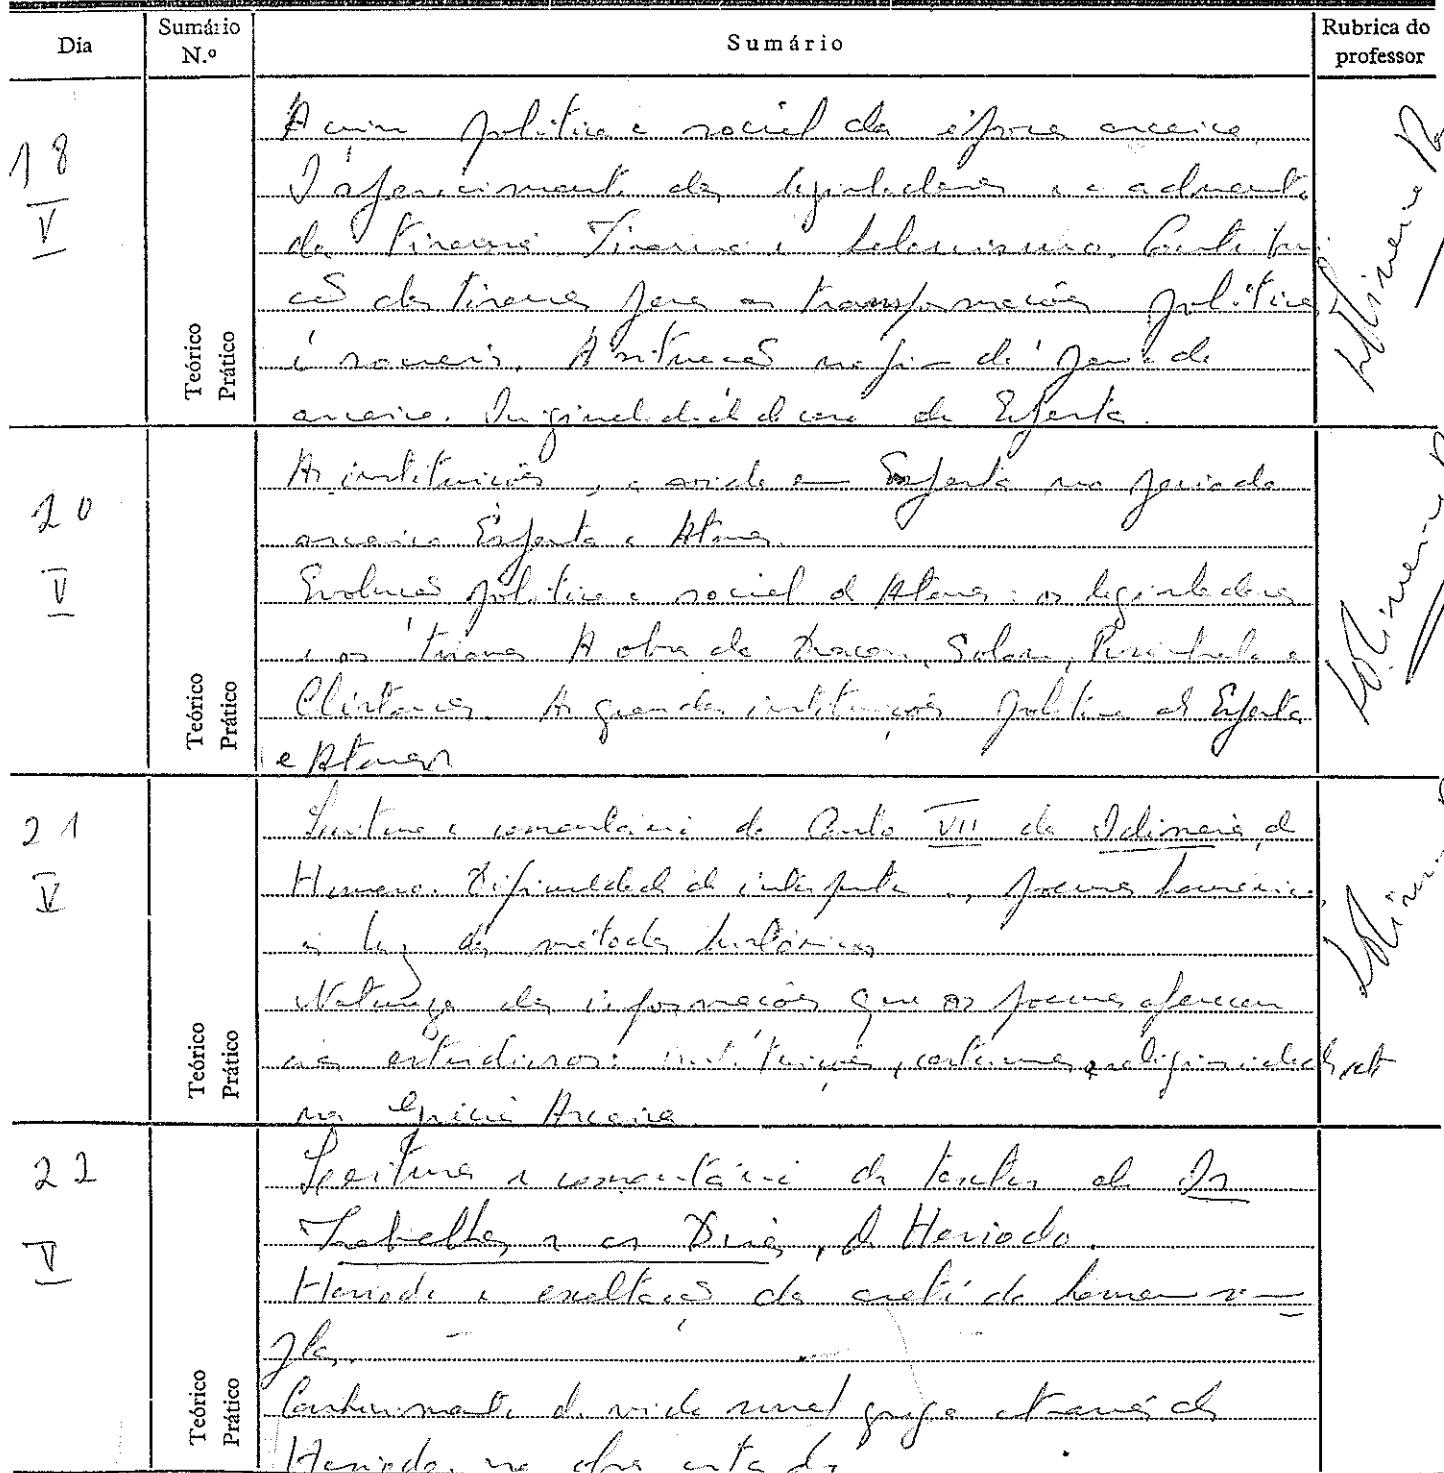 Dia
Sumário
N.º
Sumário
Rubrica do
professor
18
V
Teórico
Prático
A crise política e social da época arcaica
O aparecimento dos legisladores e o advento
da tirania. Tirania e
dos tiranos para as transformações políticas
e sociais. A situação no fim do período
arcaico. Originalidade do caso de Esparta.
20
V
Teórico
Prático
As instituições e a vida em Esparta no período
arcaico Esparta e Atenas.
Evolução política e social de Atenas: os legisladores
e os tiranos A obra de Dracon, Solon, Pisístrato e
Clístenes. As grandes instituições políticas de Esparta
e Atenas
21
V
Teórico
Prático
Leitura e comentário do Canto VII da Odisseia, de
Homero. Dificuldade de interpretar os poemas homéricos
à luz dos métodos históricos
Natureza das informações que os poemas oferecem
aos estudiosos: instituições, costumes, religiosidade, etc
na Grécia Arcaica
22
V
Teórico
Prático
Leitura e comentário de textos de Os
Trabalhos e os Dias, de Hesíodo.
Hesíodo e exaltação da aretê do homem sim-
ples.
Conhecimento da vida rural grega através de
Hesíodo, na obra